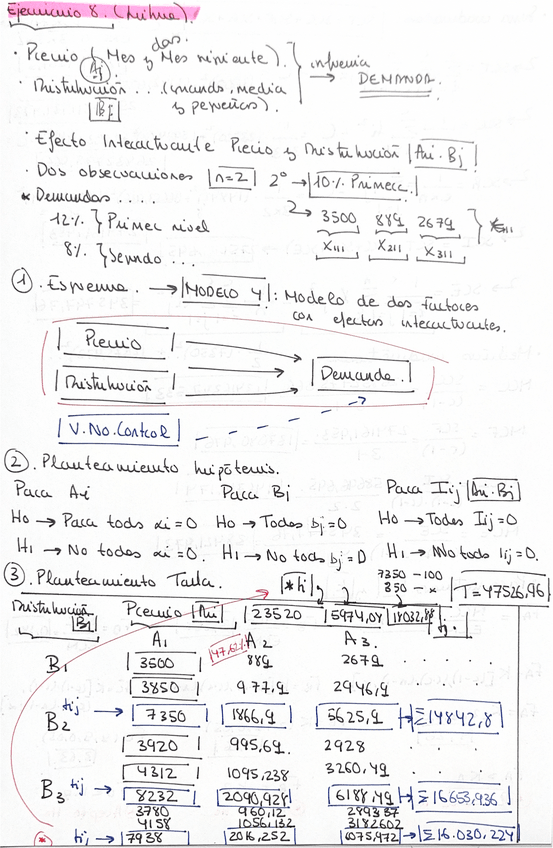 Ejercicio 8.
· Precio (Mes y dos Mes siguiente).
Ai
influencia → DEMANDA.
· Distribución .. (grande, media y pequeña).
Bj
· Efecto Interactuante Precio y Distribución Ai·Bj
· Dos observaciones n=2 2º → 10% Primera
* Demandas ....
→ 3500 889 2679
12% } Primer nivel
X111 X211 X311
8% } Segundo ...
① Esquema. → MODELO 4: Modelo de dos factores con efectos interactuantes.
Precio
Distribución
Demanda.
V. No. Control
② Planteamiento hipótesis.
Para Ai Para Bj Para Iij Ai·Bj
H0 → Para todos αi=0 H0 → Todos bj=0 H0 → Todos Iij=0.
H1 → No todos αi=0. H1 → No todos bj=0 H1 → No todos Iij=0.
③ Planteamiento Tabla.
*hi
7350 - 100
350 - x
T=47526,96
Distribución Bj Precio Ai 23520 5974,08
A1 A2 A3.
47,62%
B1 3500 889 2679 . . .
3850 977,9 2946,9 . . .
tij → 7350 1866,9 5625,9 → Σ14842,8
B2
3920 995,69. 2928
4312 1095,238 3260,49
B3 tij → 8232 2090,928 6188,49 → Σ16653,936
3780 960,12 289337
4158 1056,132 3182602
(*) tij → 7938 2016,252 → Σ16.030,224